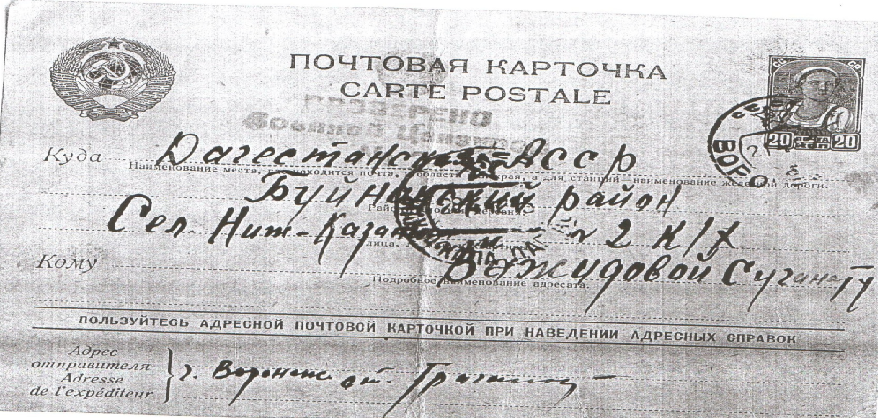 ПОЧТОВАЯ КАРТОЧКА
CARTE POSTALE
ПРОВЕРЕНО
Военной Цензурой
20 20
Куда Дагестанская АССР
Наименование места, где находится почта, и области или края, а для станций – наименование железной дороги.
Буйнакский район
Сел Ниж-Казанищи 2 к/х
Кому Важидовой Суганату
Подробное наименование адресата.
ПОЛЬЗУЙТЕСЬ АДРЕСНОЙ ПОЧТОВОЙ КАРТОЧКОЙ ПРИ НАВЕДЕНИИ АДРЕСНЫХ СПРАВОК
Адрес
отправителя
Adresse
de l'expéditeur
г. Воронеж от